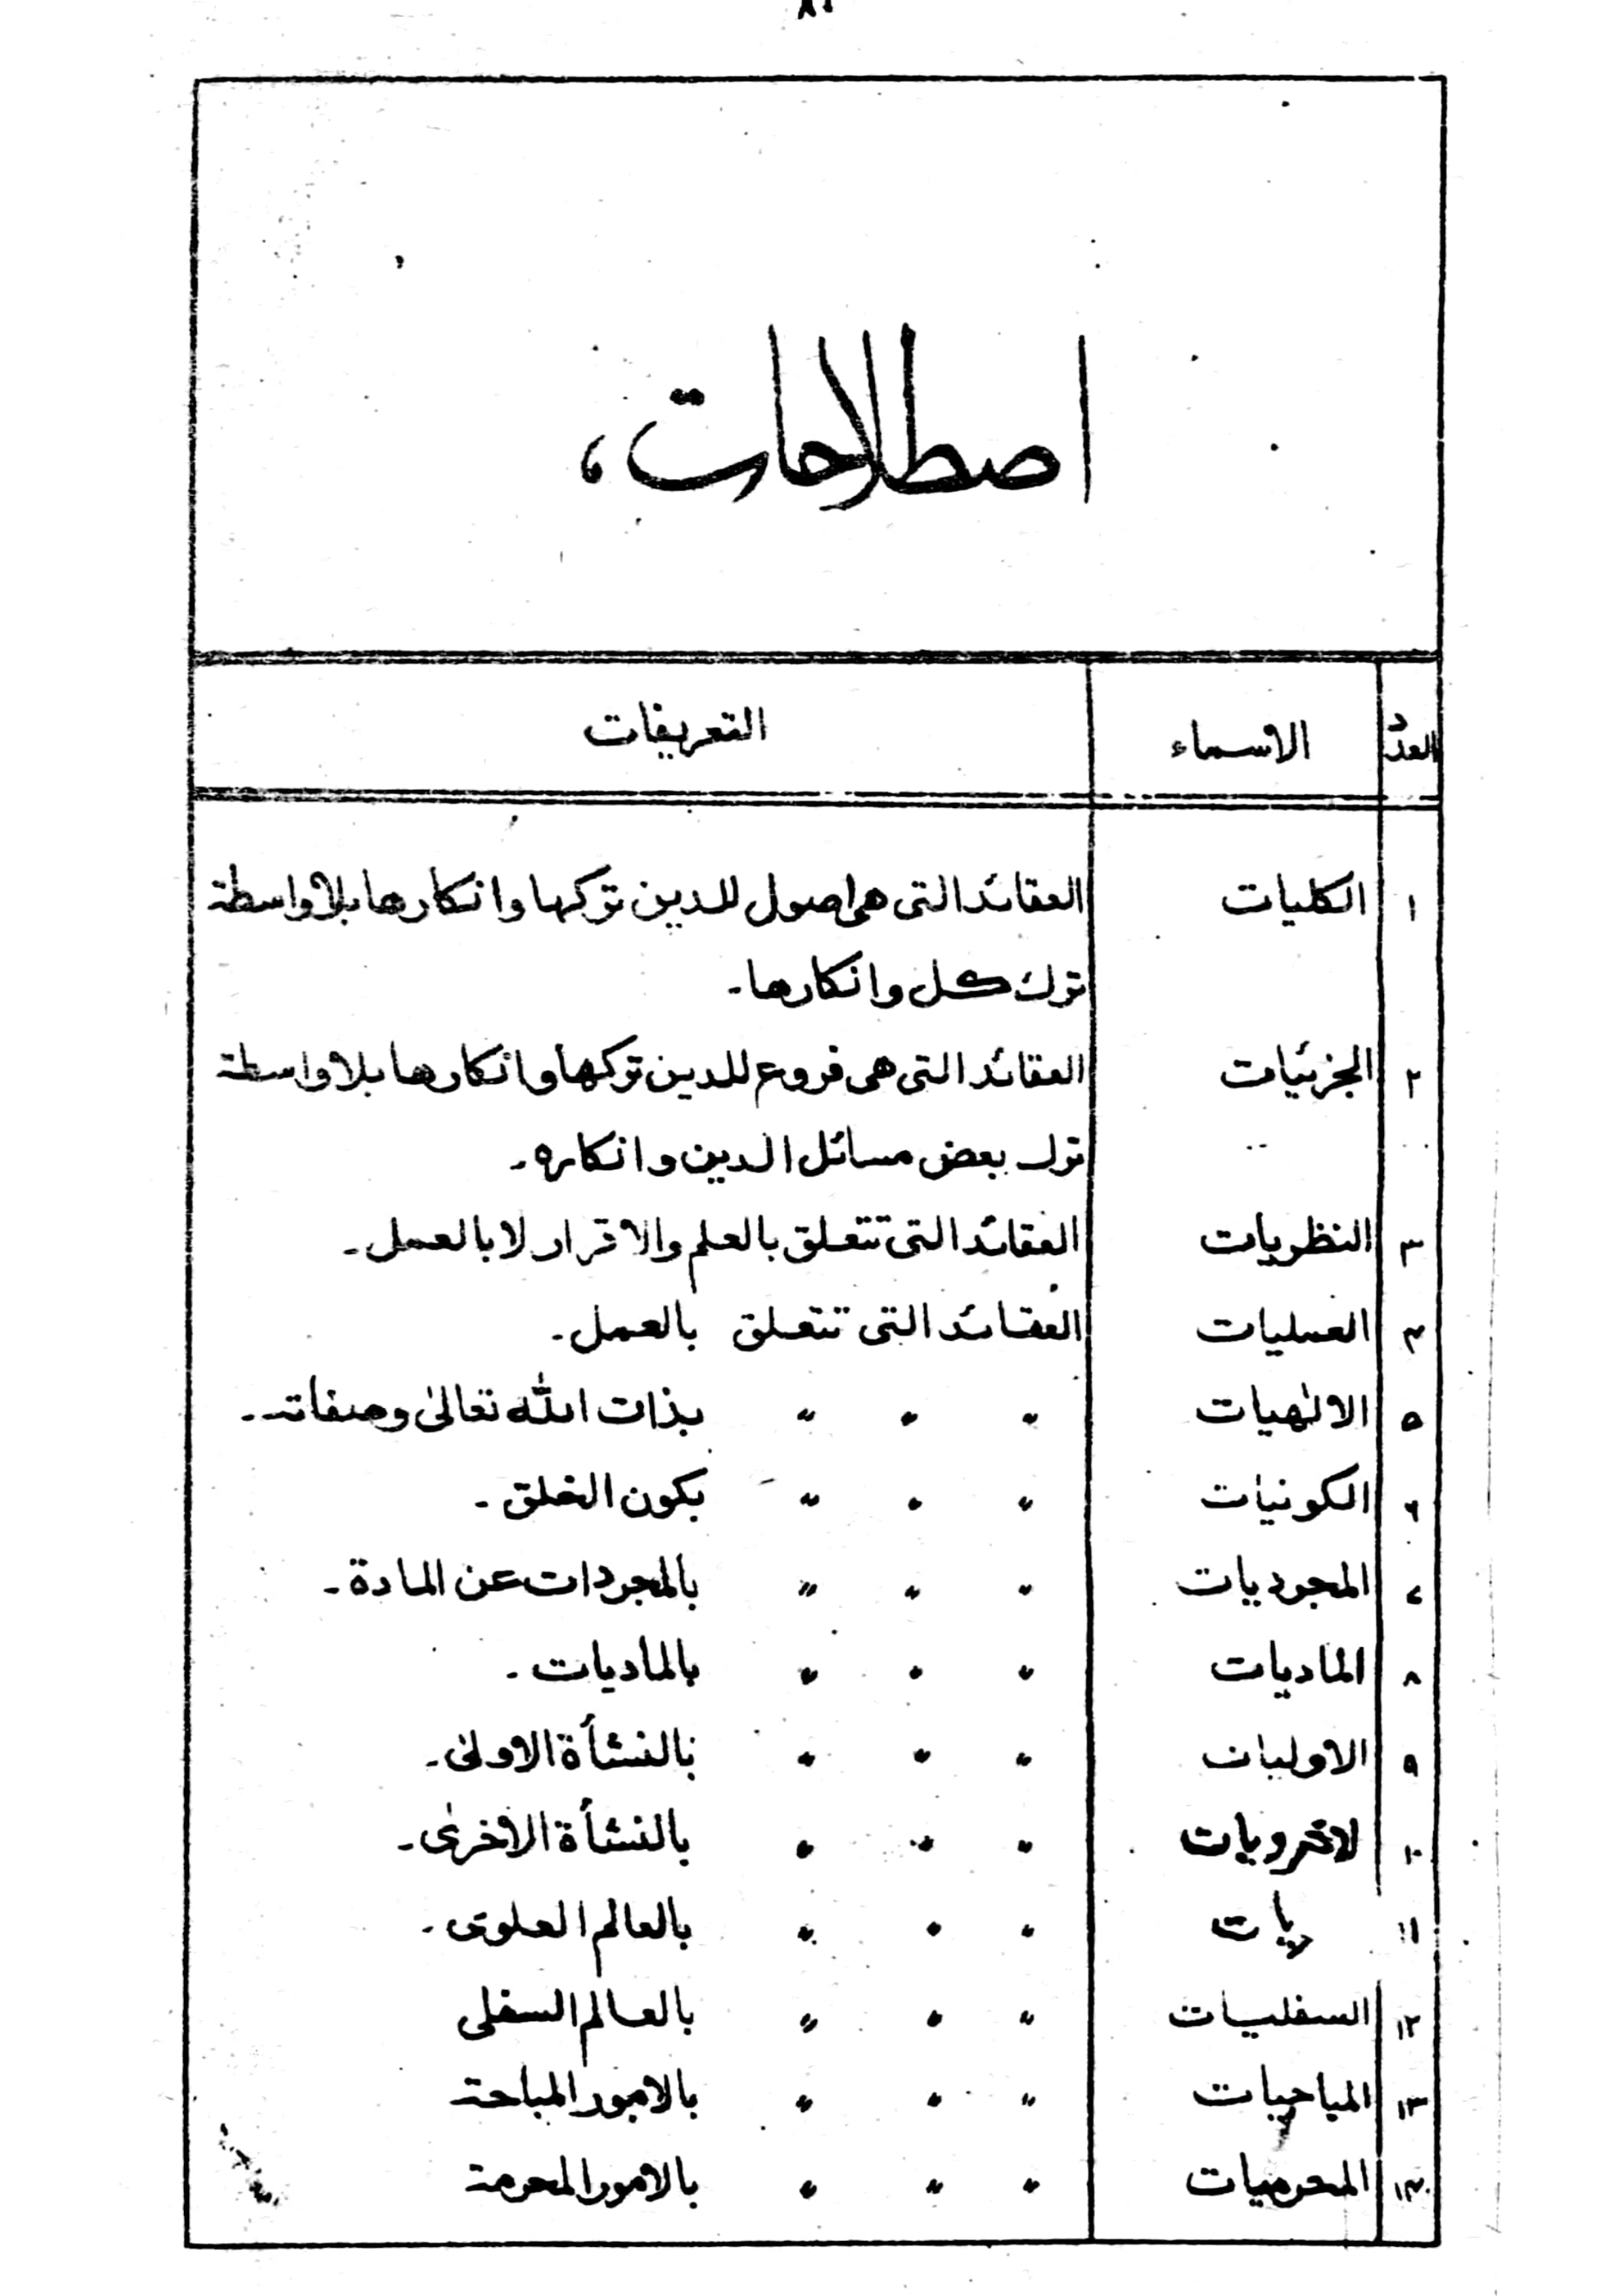 اصطلاحات،
العدد الاسماء التعريفات
١ الكليات العقائد التى هى اصول للدين تركها وانكارها بلا واسطة
ترك كل وانكارها۔
٢ الجزئيات العقائد التى هى فروع للدين تركها وانكارها بلا واسطة
ترك بعض مسائل الدين وانكاره۔
٣ النظريات العقائد التى تتعلق بالعلم والاقرار لا بالعمل۔
۴ العمليات العقائد التى تتعلق بالعمل۔
٥ الالٰهيات 〃 〃 〃 بذات الله تعالىٰ وصفاته۔
٦ الكونيات 〃 〃 〃 بكون الخلق۔
٧ المجرديات 〃 〃 〃 بالمجردات عن المادة۔
٨ الماديات 〃 〃 〃 بالماديات۔
٩ الاوليات 〃 〃 〃 بالنشأة الاولىٰ۔
١٠ الاخرويات 〃 〃 〃 بالنشأة الاخرىٰ۔
١١ ويات 〃 〃 〃 بالعالم العلوى۔
١٢ السفليات 〃 〃 〃 بالعالم السفلى
١٣ المباحيات 〃 〃 〃 بالامور المباحة
١۴ المحرميات 〃 〃 〃 بالامور المحرمة